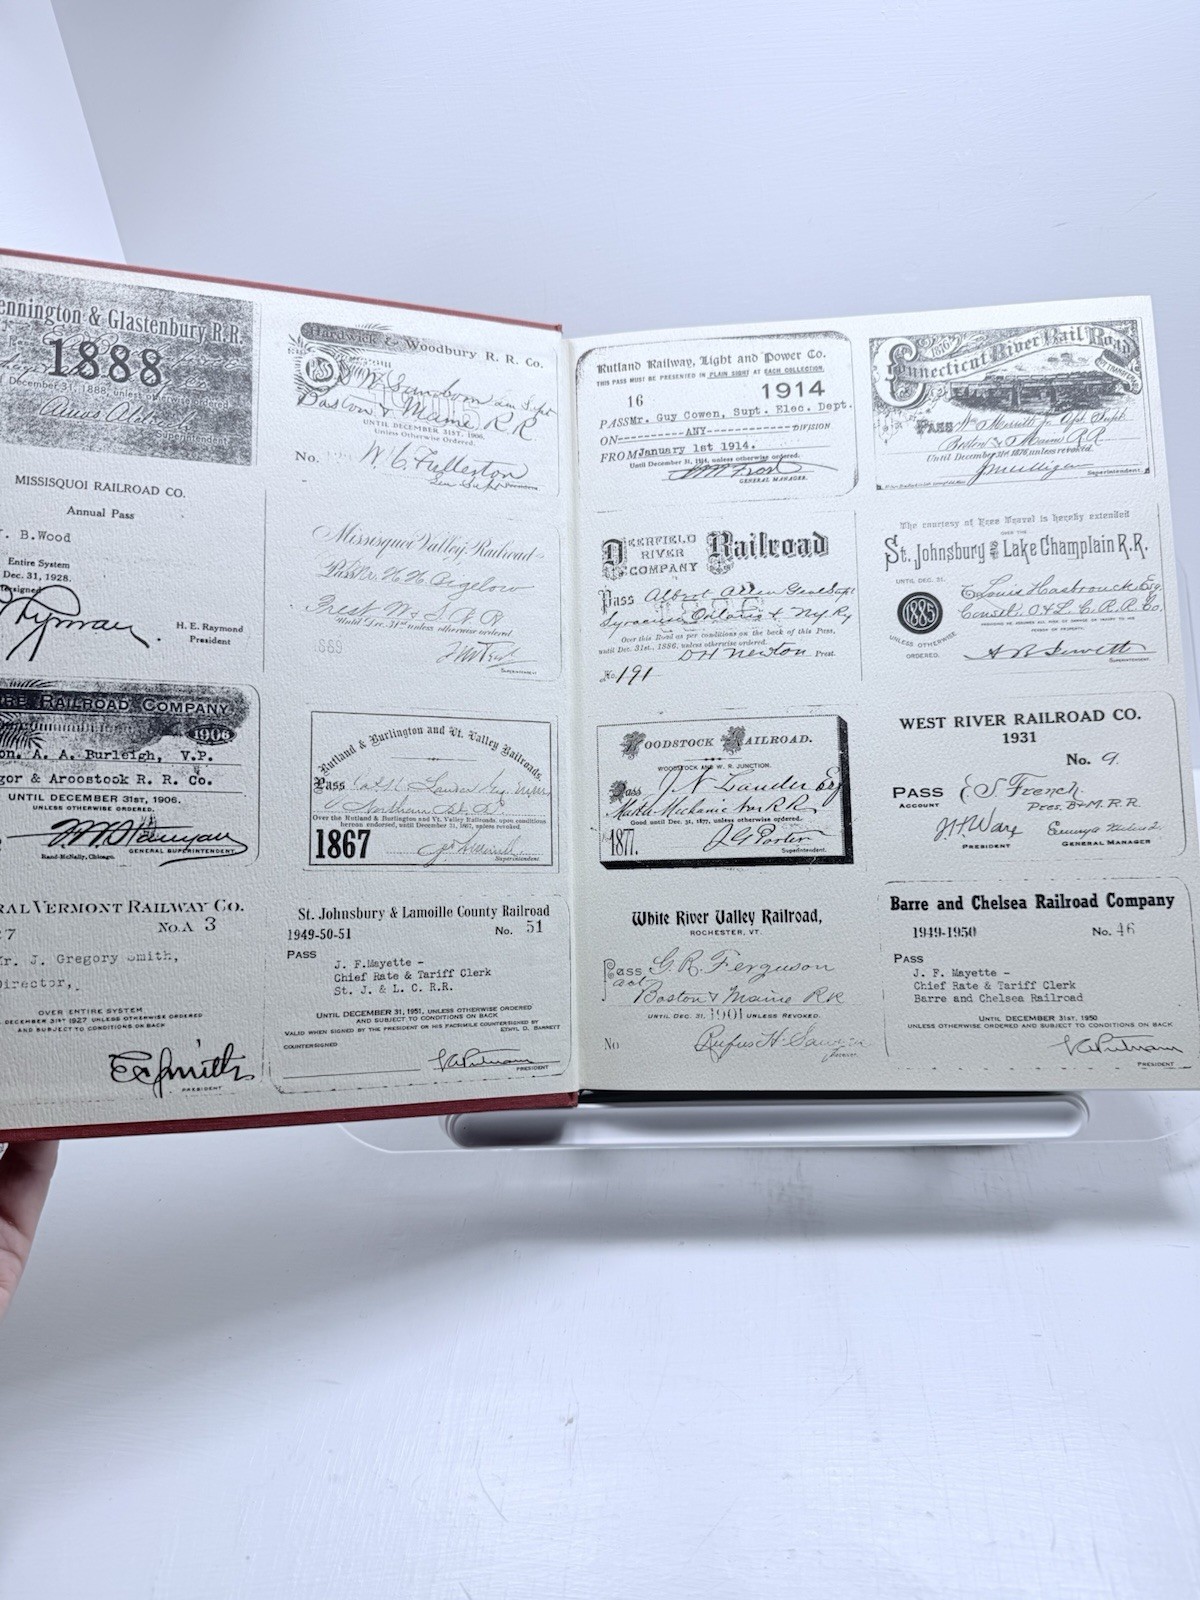 ennington & Glastenbury R.R.
1888
December 31, 1888, unless otherwise
Amos Aldrich
Superintendent
MISSISQUOI RAILROAD CO.
Annual Pass
. B.Wood
Entire System
Dec. 31, 1928.
H. E. Raymond
President
RAILROAD COMPANY
1906
on. A. A. Burleigh, V.P.
gor & Aroostook R. R. Co.
UNTIL DECEMBER 31ST, 1906.
UNLESS OTHERWISE ORDERED.
GENERAL SUPERINTENDENT.
Rand-McNally, Chicago.
RAL VERMONT RAILWAY CO.
27
No.A 3
Mr. J. Gregory Smith,
Director,
OVER ENTIRE SYSTEM
DECEMBER 31ST 1927 UNLESS OTHERWISE ORDERED
AND SUBJECT TO CONDITIONS ON BACK
E C Smith
PRESIDENT
Hardwick & Woodbury R. R. Co.
Boston & Maine R R
UNTIL DECEMBER 31ST, 1906.
Unless Otherwise Ordered.
No.
W. C. Fullerton
Missisquoi Valley Railroad
Pass Mr. H. H. Bigelow
Until Dec. 31st unless otherwise ordered.
889
Rutland & Burlington and Vt. Valley Railroads.
Pass
Northern
Over the Rutland & Burlington and Vt. Valley Railroads, upon conditions
hereon endorsed, until December 31, 1867, unless revoked.
1867
Superintendent.
St. Johnsbury & Lamoille County Railroad
1949-50-51
No. 51
PASS
J. F.Mayette -
Chief Rate & Tariff Clerk
St. J. & L. C. R.R.
UNTIL DECEMBER 31, 1951, UNLESS OTHERWISE ORDERED
AND SUBJECT TO CONDITIONS ON BACK
VALID WHEN SIGNED BY THE PRESIDENT OR HIS FACSIMILE COUNTERSIGNED BY
ETHYL O. BARRETT
COUNTERSIGNED
PRESIDENT
Rutland Railway, Light and Power Co.
THIS PASS MUST BE PRESENTED IN PLAIN SIGHT AT EACH COLLECTION.
16
1914
PASS Mr. Guy Cowen, Supt. Elec. Dept.
ON----------ANY-------------DIVISION
FROM January 1st 1914.
Until December 31, 1914, unless otherwise ordered.
GENERAL MANAGER.
1876
Connecticut River Rail Road
PASS Wm Merritt Jr
Boston & Maine RR
Until December 31st 1876, unless revoked.
J Mulligan
Superintendent.
DEERFIELD
RIVER
COMPANY
Railroad
Pass Albert Allen Genl Supt
Syracuse Ontario & N.Y. Ry
Over this Road as per conditions on the back of this Pass,
until Dec. 31st., 1886, unless otherwise ordered.
D H Newton Prest.
No. 191
The courtesy of Free Travel is hereby extended
OVER THE
St. Johnsbury and Lake Champlain R.R.
UNTIL DEC. 31.
1885
UNLESS OTHERWISE
ORDERED.
E Louis Hasbrouck Esq
Consel. O & L. C. R.R Co.
Superintendent.
WOODSTOCK RAILROAD.
WOODSTOCK AND W. R. JUNCTION.
Pass J. N. Lauder Esq
Master Mechanic Nor R R
Good until Dec. 31, 1877, unless otherwise ordered.
1877.
J G Porter
Superintendent.
WEST RIVER RAILROAD CO.
1931
No. 9.
PASS E S French
ACCOUNT Pres. B & M. R R
PRESIDENT
GENERAL MANAGER
White River Valley Railroad,
ROCHESTER, VT.
Pass G. R. Ferguson
act Boston & Maine RR
UNTIL DEC. 31, 1901 UNLESS REVOKED.
No
Barre and Chelsea Railroad Company
1949-1950
No. 46
PASS
J. F. Mayette -
Chief Rate & Tariff Clerk
Barre and Chelsea Railroad
UNTIL DECEMBER 31ST, 1950
UNLESS OTHERWISE ORDERED AND SUBJECT TO CONDITIONS ON BACK
PRESIDENT